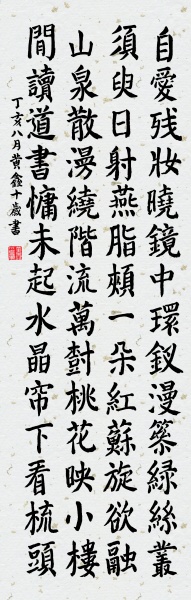 自愛残妝曉鏡中環釵漫篸緑絲叢
須臾日射燕脂頰一朵紅蘇旋欲融
山泉散漫繞階流萬樹桃花映小樓
間讀道書慵未起水晶帘下看梳頭
丁亥八月黄鑫十歲書